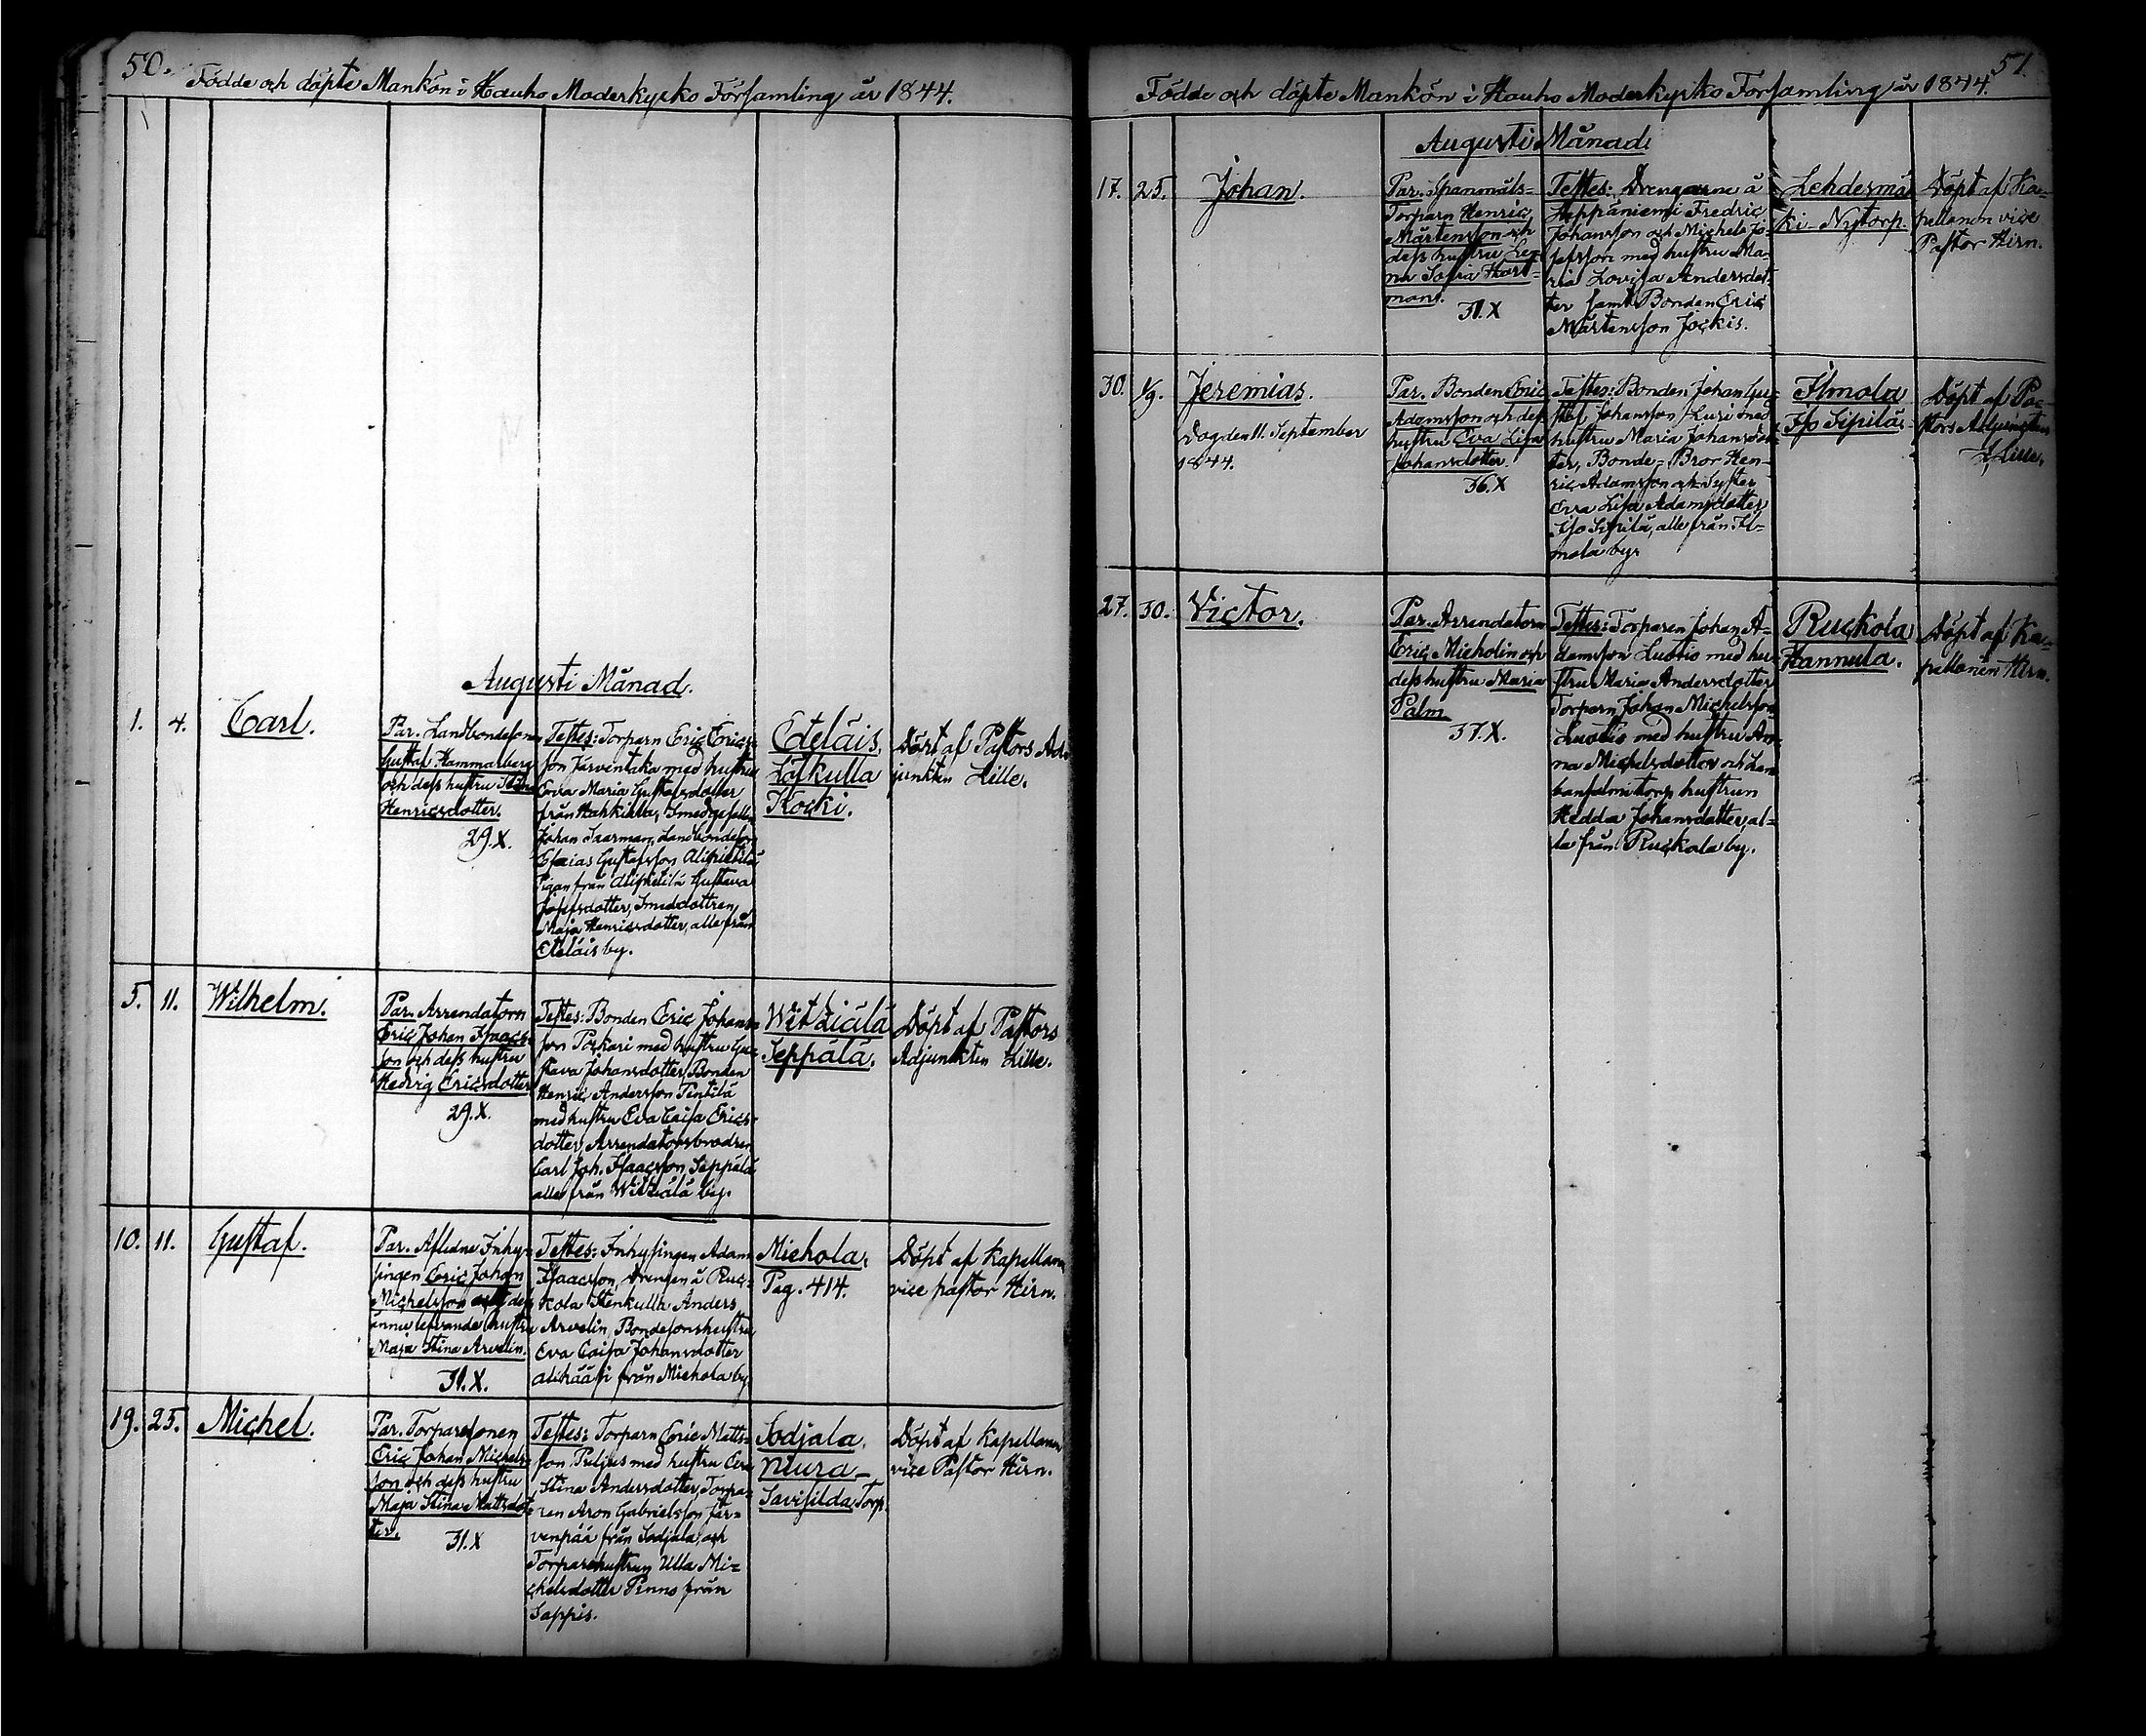 50.
Födde och döpte Mankön i Hauho Moderkyrko Församling år 1844.
Augusti Månad.
1. 4. Carl.
Par. Landbondeson
Gustaf Hammarberg
och dess hustru Stina
Henricsdotter.
29.X.
Testes: Torparn Eric Erics-
son Järventaka med hustru
Eva Maria Gustafsdotter
från Hahkiala, Smedgesällen
Johan Saarman, Landbondeson
Esaias Gustafsson Alipietilä
Pigan från Alipietilä Gustava
Josefsdotter, Smeddottren
Maja Henricsdotter, alle från
Eteläis by.
Eteläis,
Löfkulla
Kocki.
Döpt af Pastors Ad-
junkten Lille.
5. 11. Wilhelm.
Par. Arrendatorn
Eric Johan Isaacs-
son och dess hustru
Hedvig Ericsdotter
29.X.
Testes: Bonden Eric Johans-
son Porkari med hustru Gu-
stava Johansdotter, Bonden
Henric Andersson Pentilä
med hustru Eva Caisa Erics-
dotter, Arrendatorsbrodren
Carl Joh. Isaacsson Seppälä
alle från Witziälä by.
Witziälä
Seppälä.
Döpt af Pastors
Adjunkten Lille.
10. 11. Gustaf.
Par. Aflidne Inhy-
singen Eric Johan
Michelsson och des
ännu lefvande hustru
Maja Stina Arvelin.
31.X.
Testes: Inhysingen Adam
Isaacsson, Drengen å Ruc-
kola Stenkulla Anders
Arvelin, Bondesonshustru
Eva Caisa Johansdotter
Alihääsi från Miehola by
Miehola,
Pag. 414.
Döpt af Kapellanen
vice pastor Hirn.
19. 25. Michel.
Par. Torparesonen
Eric Johan Michels-
son och dess hustru
Maja Stina Mattsdot-
ter.
31.X
Testes: Torparn Eric Matts-
son Puljus med hustru Eva
Stina Andersdotter, Torpa-
ren Aron Gabrielsson Jär-
venpää från Sodjala, och
Torparehustrun Ulla Mi-
chelsdotter Pinno från
Sappis.
Sodjala,
Niura-
Savisilda Torp.
Döpt af Kapellanen
vice Pastor Hirn.
51.
Födde och döpte Mankön i Hauho Moderkyrko Församling år 1844.
Augusti Månad.
17. 25. Johan.
Par. Spanmåls-
Torparn Henric
Mårtensson och
dess hustru Le-
na Sofia Hart-
man.
31.X
Testes: Drengarne å
Heppäniemi Fredric
Johansson och Michel Jo-
sefsson med hustru Ma-
ria Lovisa Andersdot-
ter samt Bonden Eric
Mårtensson Jöckis.
Lehdesmä-
ki-Nytorp.
Döpt af Ka-
pellanen vice
Pastor Hirn.
30. 1/9. Jeremias.
Dog den 11. September
1844.
Par. Bonden Eric
Adamsson och dess
hustru Eva Lisa
Johansdotter.
36.X
Testes: Bonden Johan Gu-
staf Johansson Lusi med
hustru Maria Johansdot-
ter, Bonde-Bror Hen-
ric Adamsson och Syster
Eva Lisa Adamsdotter
Iso Sipilä, alle från Il-
mola by.
Ilmola
Iso Sipilä.
Döpt af Pa-
stors Adjunkten
Lille.
27. 30. Victor.
Par. Arrendatorn
Eric Micholin och
dess hustru Maria
Palm
37.X.
Testes: Torparen Johan A-
damsson Luotio med hu-
stru Maria Andersdotter
Torparn Johan Michelsson
Luotio med hustru An-
na Michelsdotter och
torp hustrun
Hedda Johansdotter, al-
la från Ruckola by.
Ruckola
Hannula.
Döpt af Ka-
pellanen Hirn.